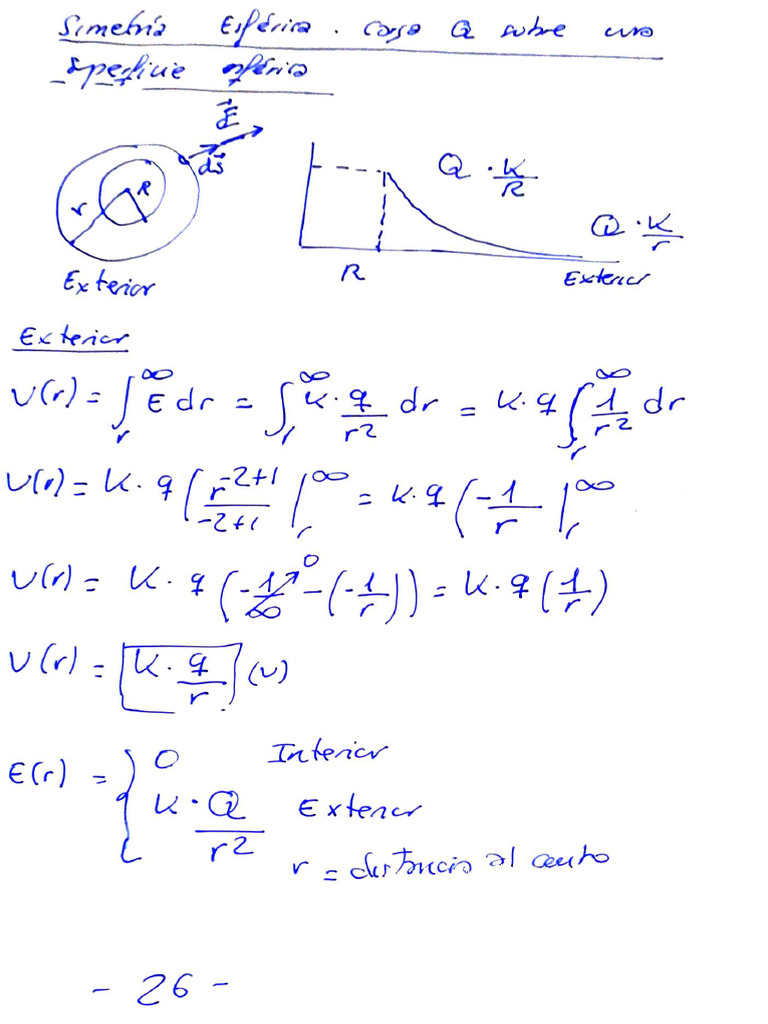 Simetría Esférica. Carga Q sobre una
superficie esférica
E⃗
ds⃗
R
r
Exterior
Q · K/R
Q · K/r
R
Exterior
Exterior
V(r) = ∫_r^∞ E dr = ∫_r^∞ K · q/r² dr = K · q ∫_r^∞ 1/r² dr
V(r) = K · q ( r^(-2+1)/(-2+1) |_r^∞ = K · q ( -1/r |_r^∞
V(r) = K · q ( -1/∞ ↗0 - ( -1/r ) ) = K · q ( 1/r )
V(r) = K · q/r (V)
E(r) = { 0 Interior
K · Q/r² Exterior
r = distancia al centro
- 26 -